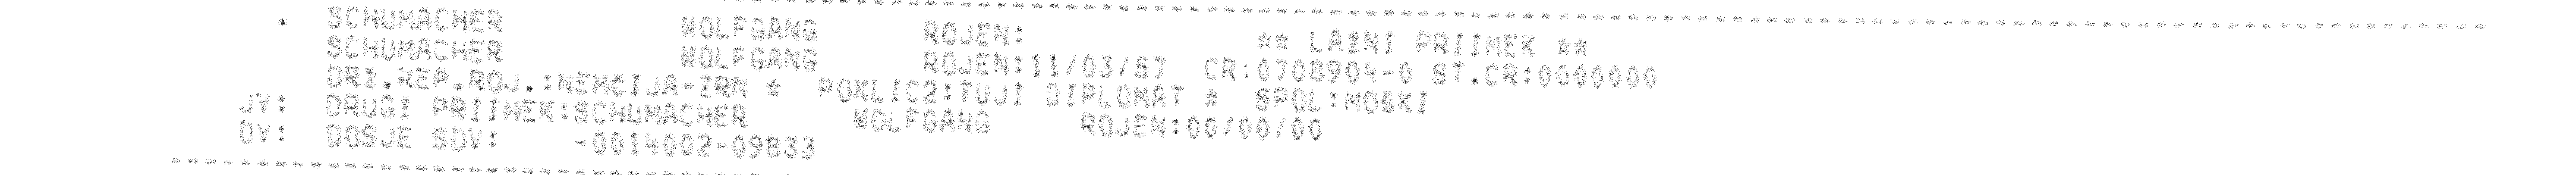 * SCHUMACHER WOLFGANG ROJEN: ** LAZNI PRIIMEK **
SCHUMACHER WOLFGANG ROJEN:11/03/57 CR:0708904-0 ST.CR:0000000
ORI.REP.ROJ.:NEMCIJA-ZRN * POKLIC2:TUJI DIPLOMAT * SPOL:MOSKI
JV: DRUGI PRIIMEK:SCHUMACHER WOLFGANG ROJEN:00/00/00
DV: DOSJE SDV: -0014002-09833